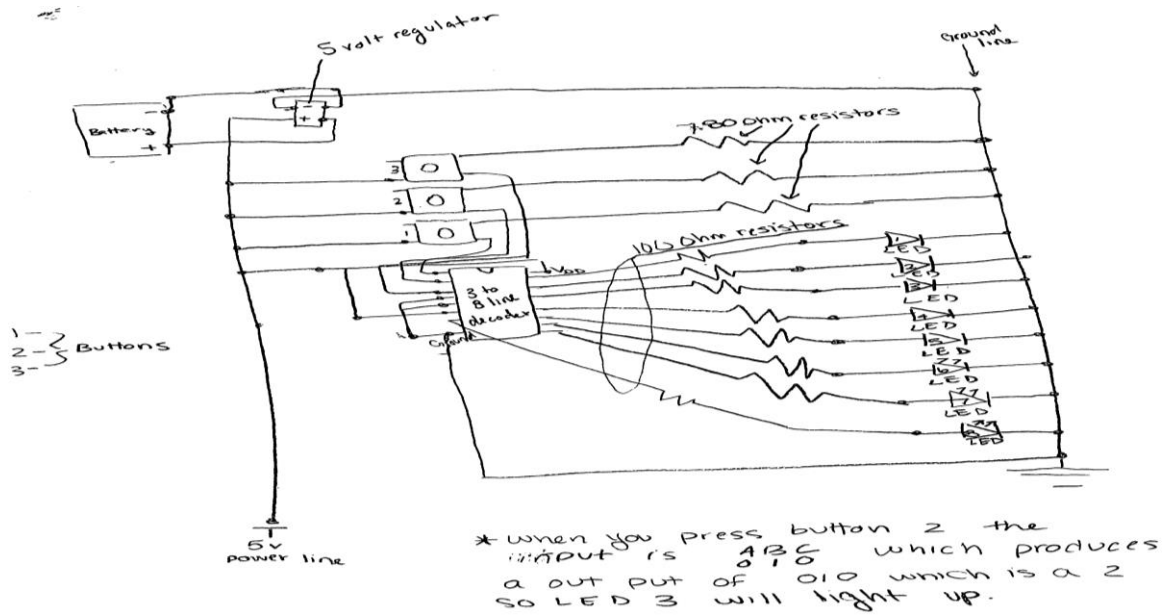 5 volt regulator
Ground
line
Battery
-
+
-
+
780 ohm resistors
3
2
1
100 Ohm resistors
VDD
3 to
8 line
decoder
Ground
1
LED
2
LED
3
LED
4
LED
5
LED
6
LED
7
LED
8
LED
1 -
2 - } Buttons
3 -
5v
power line
* when you press button 2 the
input is A B C which produces
0 1 0
a out put of 010 which is a 2
so LED 3 will light up.